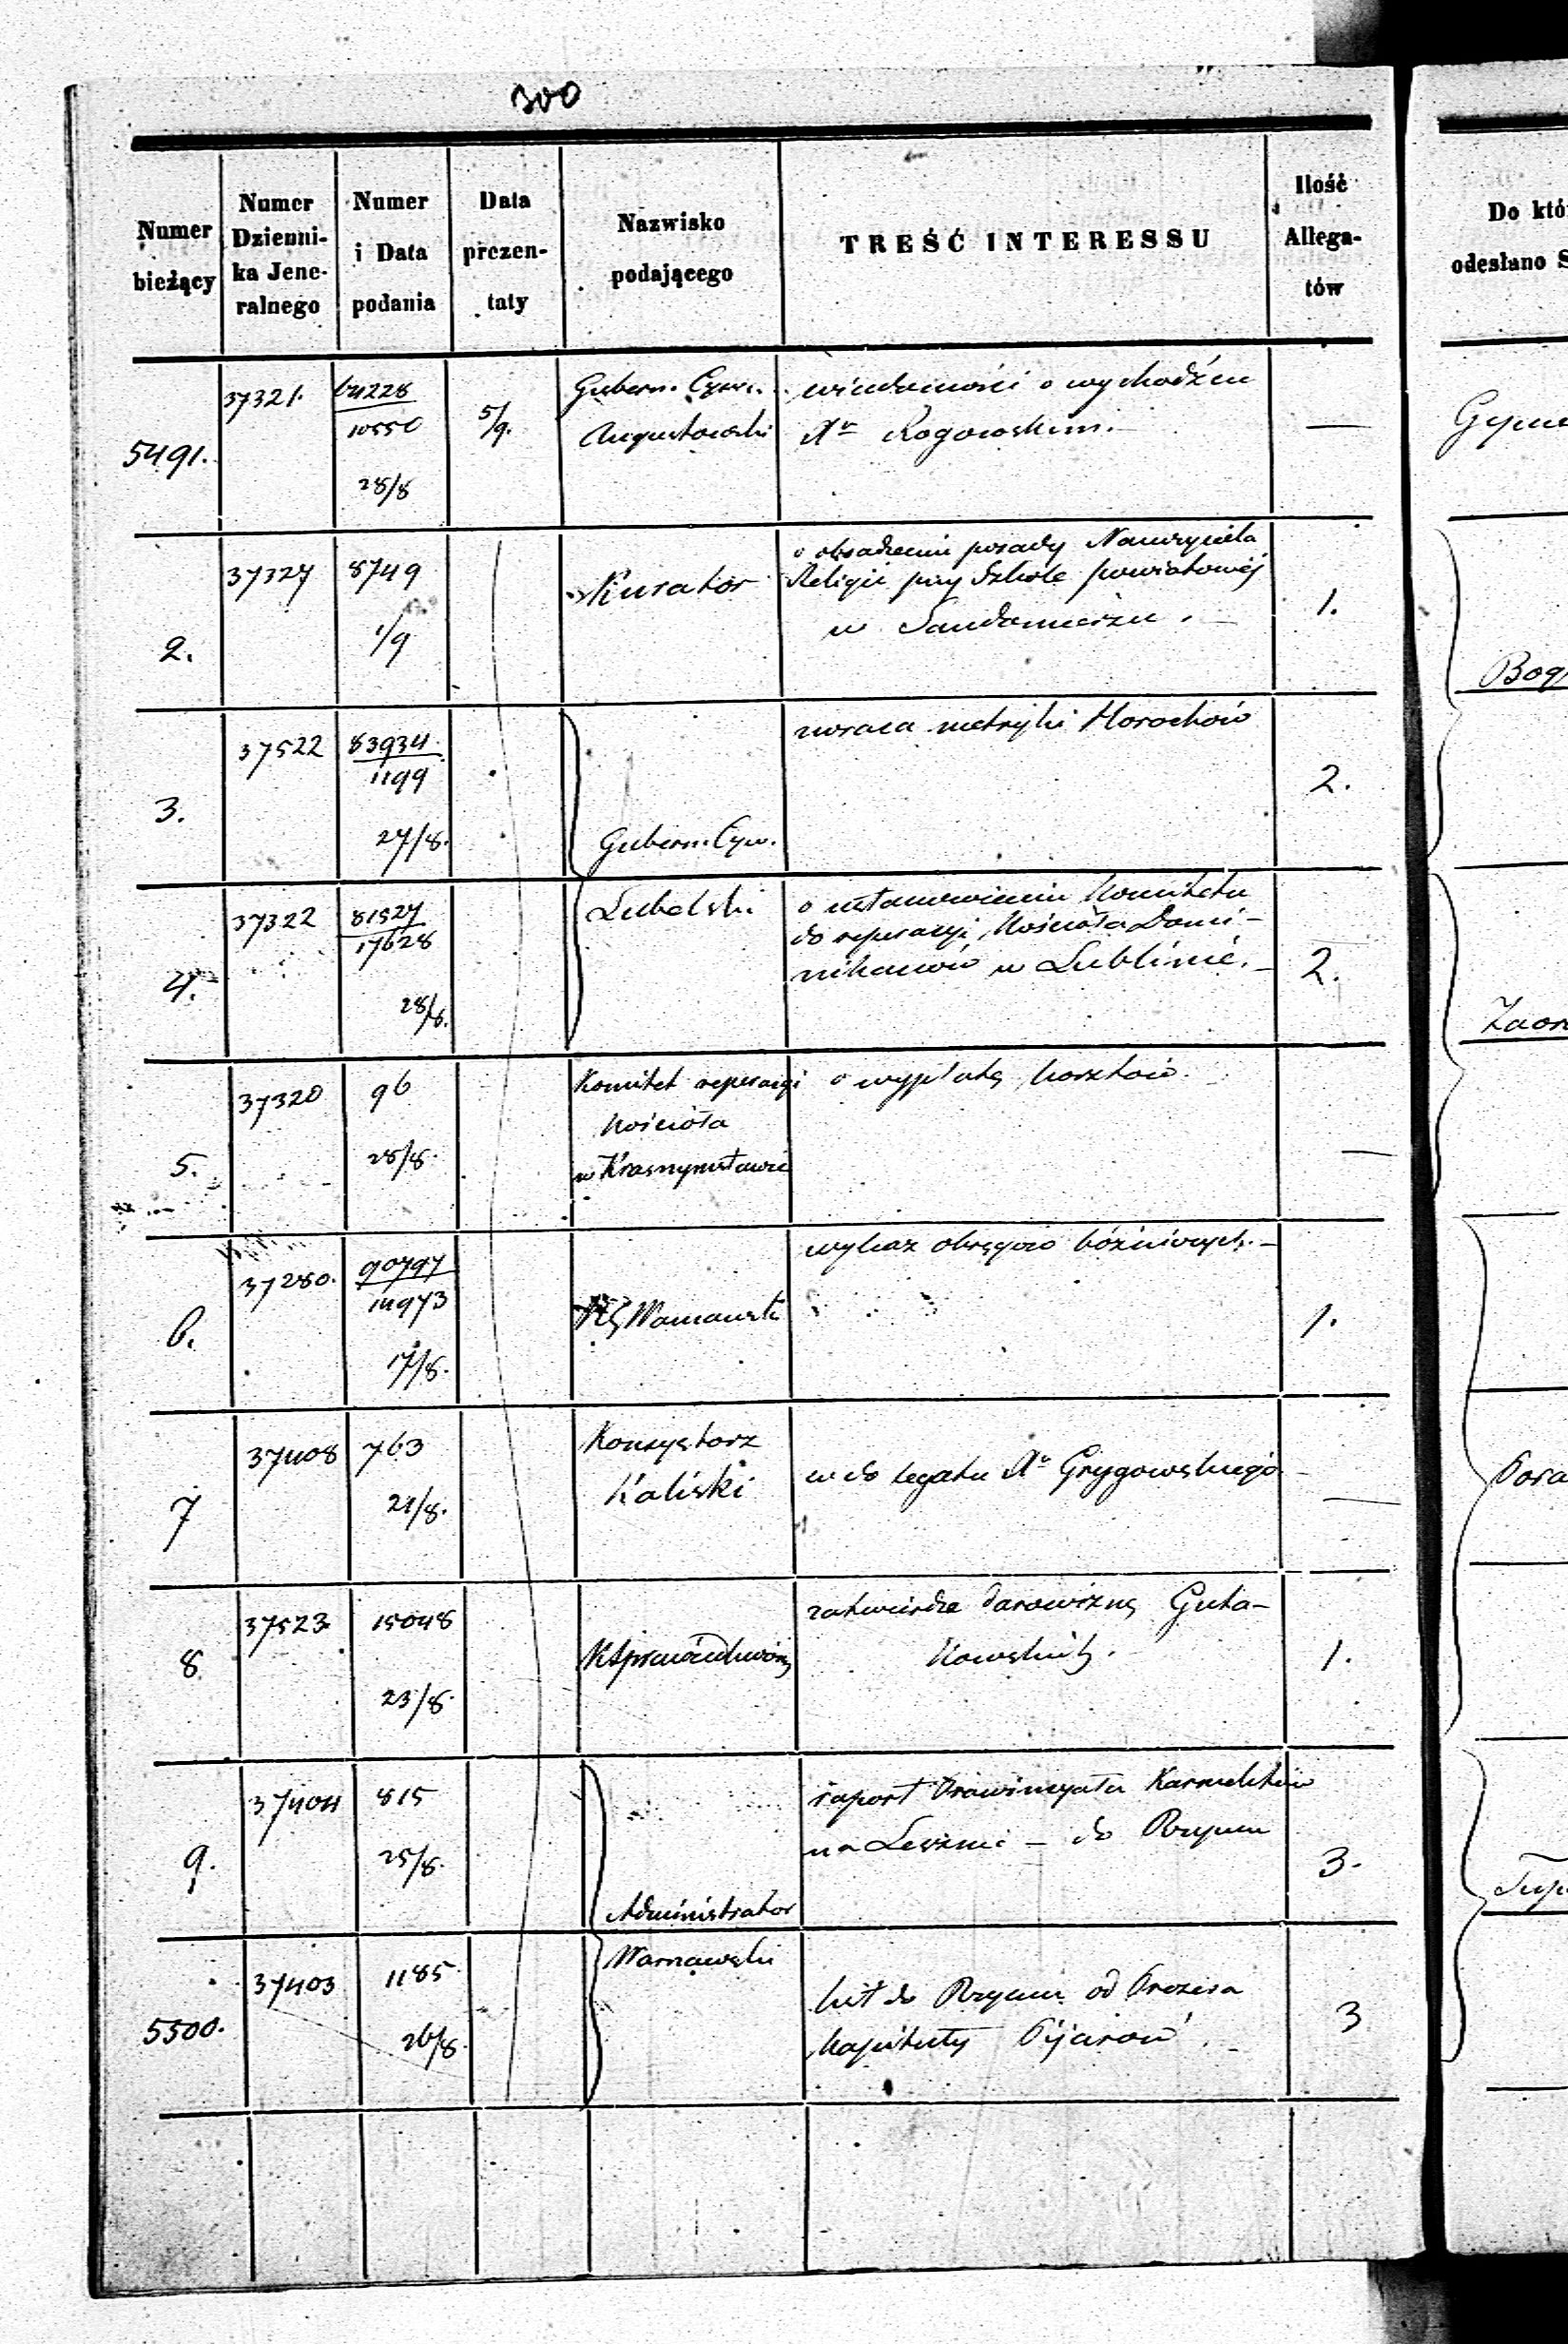 300
Numer bieżący
Numer Dzienni-ka Jene-ralnego
Numer i Data podania
Data prezen-taty
Nazwisko podającego
TREŚĆ INTERESSU
Ilość Allega-tów
Do któ
odesłano S
5491.
37321.
10550
28/8
5/9.
Gubern. Cyw.
Augustowski
wiadomości o wychodźcu
Xr Rogowskim.
—
2.
37327
8749
1/9
Kurator
o obsadzeniu posady Nauczyciela
Religii przy Szkole powiatowéj
w Sandomierzu.
1.
3.
37522
83934
1199
27/8.
Gubern. Cyw.
zwraca metryki Horochów
2.
4.
37322
81527
17628
28/8.
Lubelski
o ustanowieniu Komitetu
do reperacyi Kościoła Domi-
nikanów w Lublinie. —
2.
5.
37320
96
28/8.
Komitet reperacyi
Kościoła
w Krasnymstawie
o wypłatę kosztów.
—
6.
37280.
90797
14973
17/8.
wykaz okręgów bóżniczych. —
1.
7
37408
763
21/8.
Konsystorz
Kaliski
w do legatu Xr Grygowskiego —
—
8
37523
15048
23/8.
zatwierdza darowiznę Guta-
kowskich.
1.
9.
37404
815
25/8.
Administrator
raport Prowincyała Karmelitów
na Lesznie — do Rzymu
3.
5500.
37403
1185
26/8.
Warszawski
list do Rzymu od Prezesa
Kapituły Pijarów.
3